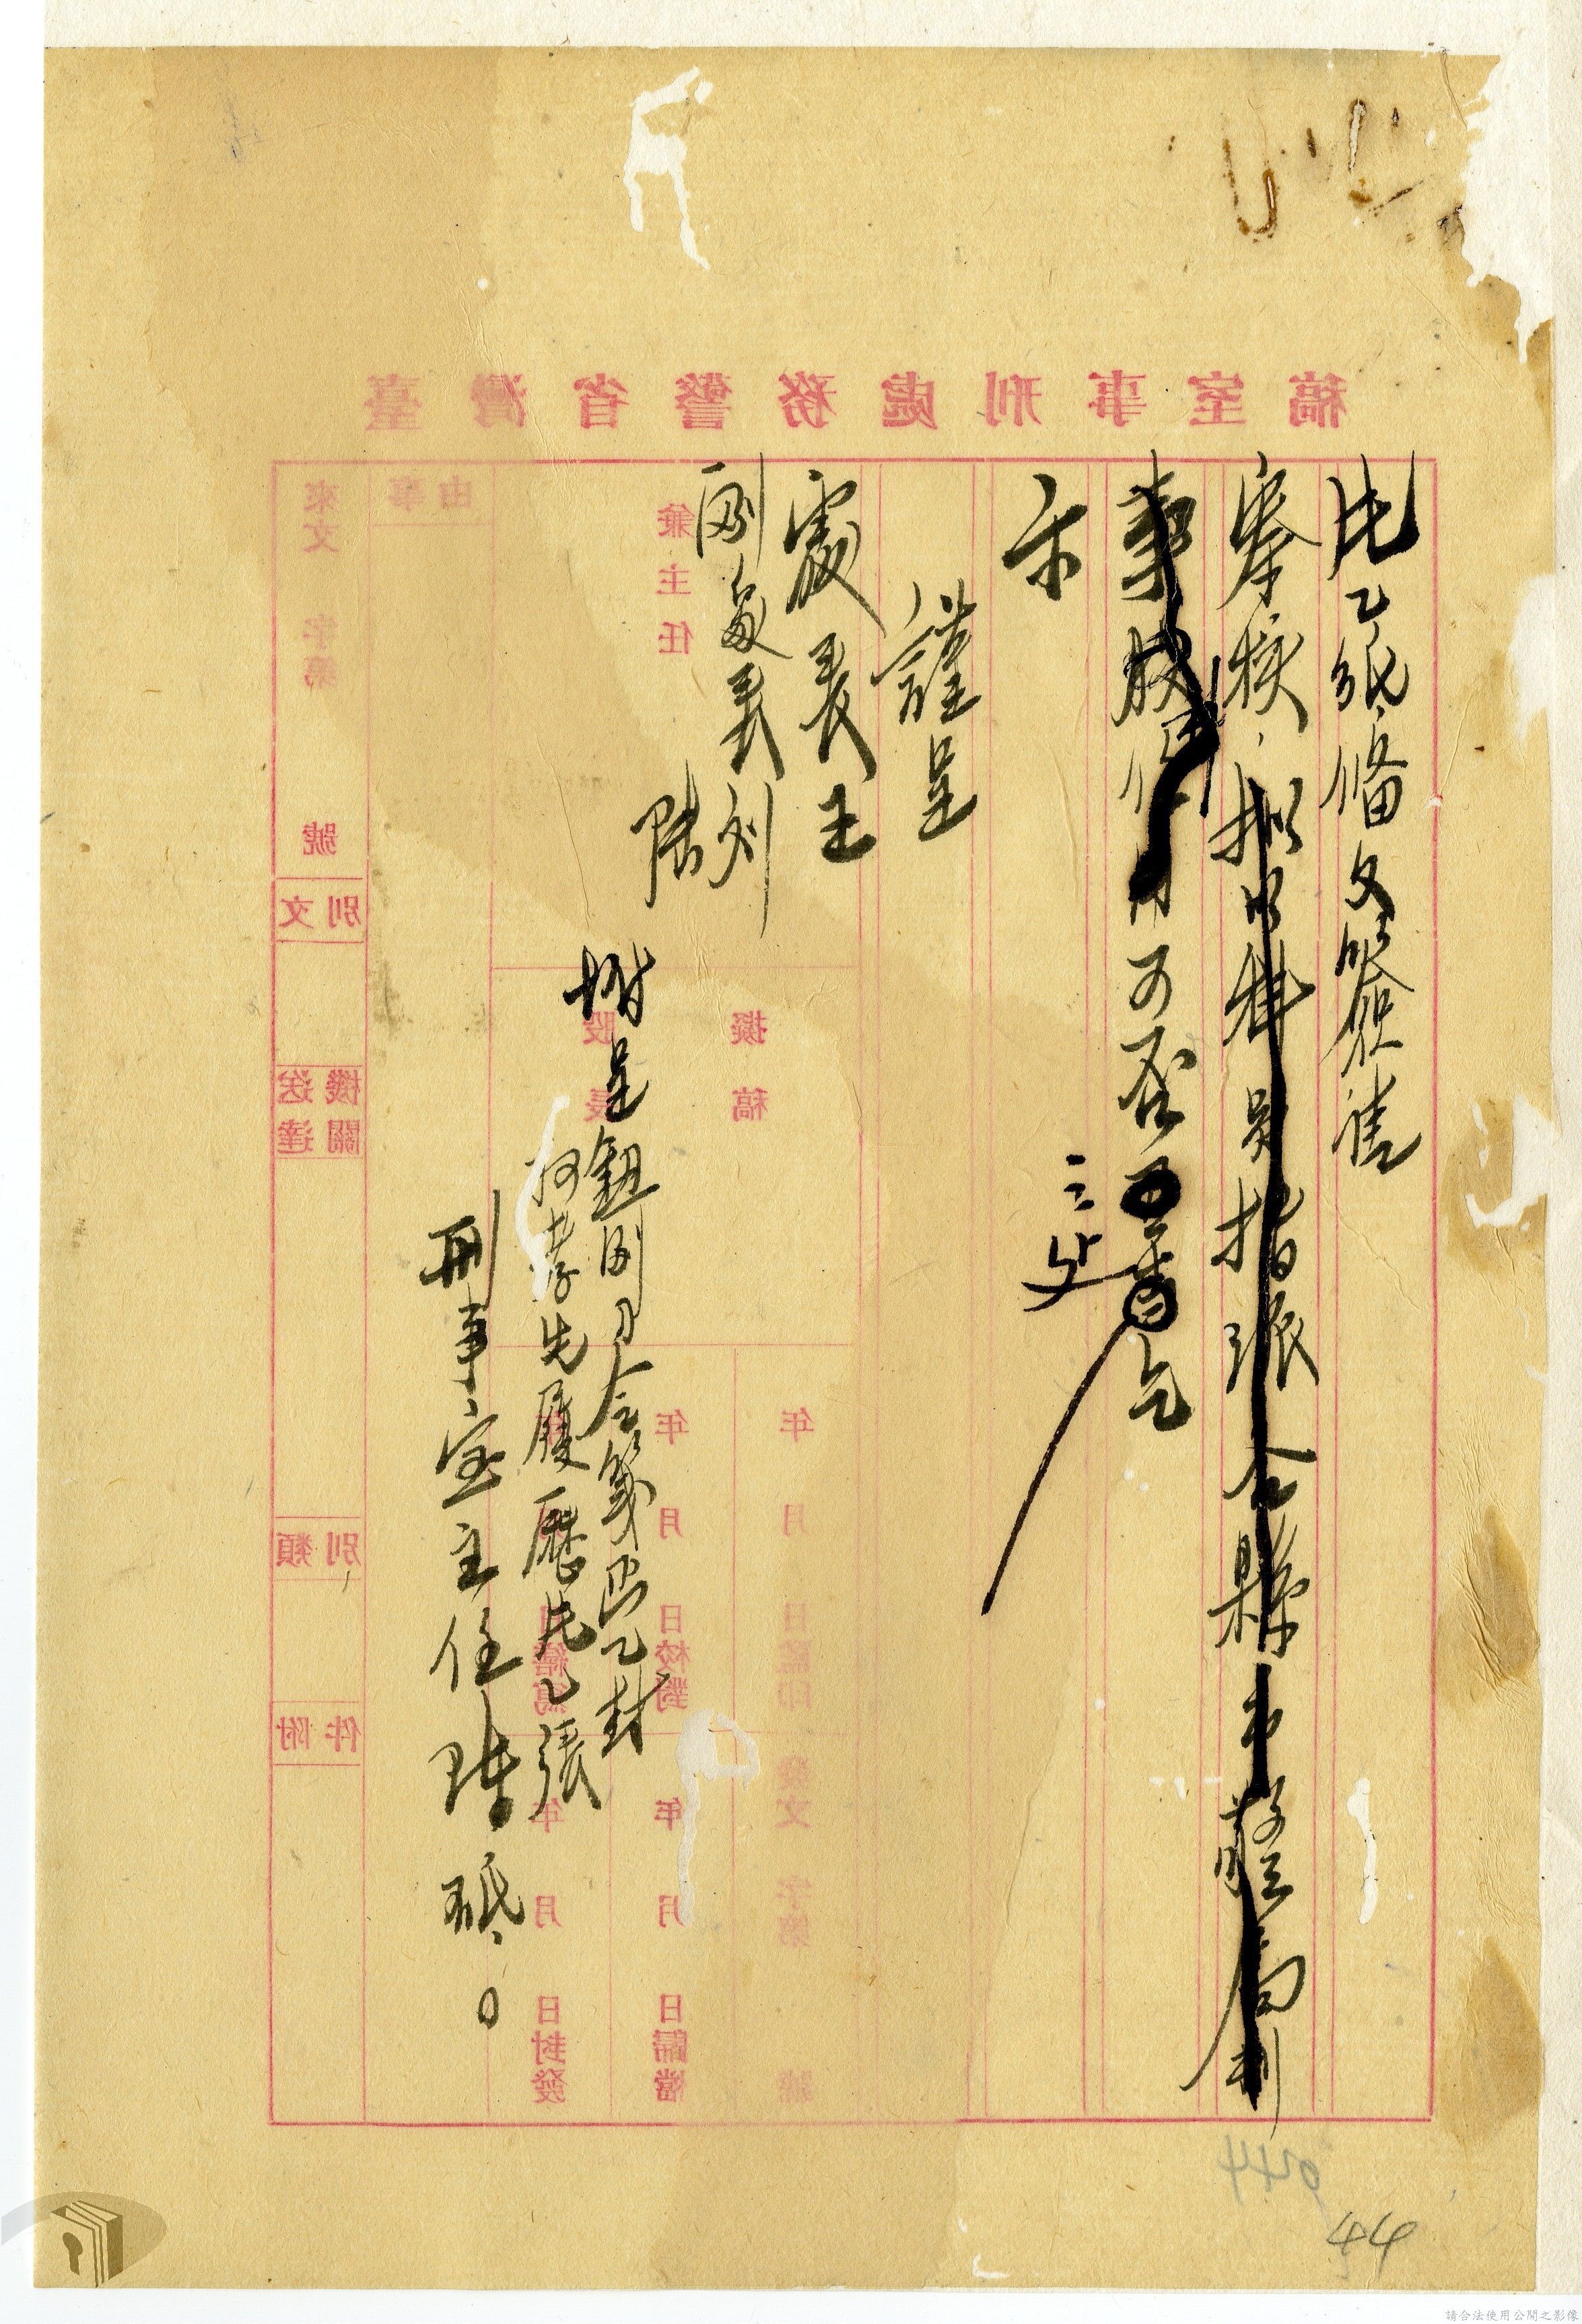 片乙紙備文簽請
察核，擬以科員指派令縣市警局刑
事股 可否 乞
示
謹呈
處長王
副處長劉
陸
附呈鈕副司令箋函乙封
何孝先履歷片乙張
刑事室主任陳砥。
臺灣省警務處刑事室稿
事由
來文 字第 號
文別
送達機關
類別
附件
兼主任
股長
擬稿
年 月 日繕寫
年 月 日校對
年 月 日監印
年 月 日封發
年 月 日歸檔
發文 字第 號
044
44
請合法使用公開之影像